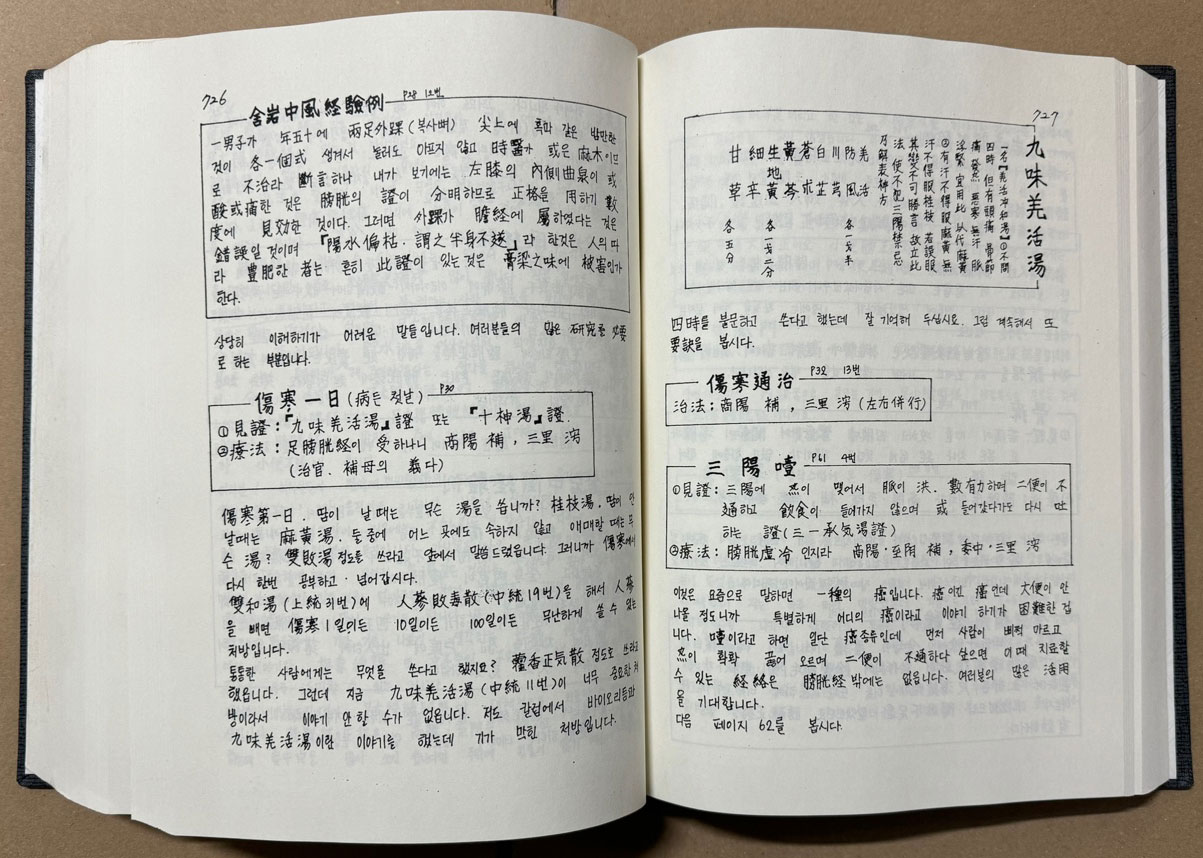 726
舍岩中風経驗例 P28 12번
一男子가 年五十에 兩足外踝(복사뼈) 尖上에 흑마 같은 밤만한
것이 各一個式 생겨서 눌러도 아프지 않고 時醫가 或은 麻木이므
로 不治라 斷言하나 내가 보기에는 左膝의 內側曲泉이 或
酸或痛한 것은 膀胱의 證이 分明하므로 正格을 用하기 數
度에 見効한 것이다. 그러면 外踝가 膽経에 屬하였다는 것은
錯誤일 것이며 「陽水偏枯, 謂之半身不遂」라 한것은 人의 따
라 豊肥한 者는 흔히 此證이 있는것은 膏梁之味에 被害인가
한다.
상당히 이해하기가 어려운 말들입니다. 여러분들의 많은 研究를 必要
로 하는 부분입니다.
傷寒一日(病든 첫날) P30
①見證:『九味羌活湯』證 또는 『十神湯』證.
②療法: 足膀胱経이 受하나니 商陽 補, 三里 瀉
(治官. 補母의 義다)
傷寒第一日. 땀이 날때는 무슨 湯을 씁니까? 桂枝湯, 땀이 안
날때는 麻黃湯. 둘중에 어느 곳에도 속하지 않고 애매할때는 무
슨 湯? 雙敗湯정도를 쓰라고 앞에서 말씀드렸읍니다. 그러니까 傷寒에서
다시 한번 공부하고 넘어갑시다.
雙和湯(上統 31번)에 人蔘敗毒散(中統 19번)을 해서 人蔘
을 빼면 傷寒 1일이든 10일이든 100일이든 무난하게 쓸 수 있는
처방입니다.
퉁퉁한 사람에게는 무엇을 쓴다고 했지요? 藿香正気散 정도로 쓰라고
했읍니다. 그런데 지금 九味羌活湯(中統 11번)이 너무 중요한 처
방이라서 이야기 안할 수가 없읍니다. 저도 칼럼에서 바이오리듬과
九味羌活湯이란 이야기를 했는데 기가 막힌 처방입니다.
727
九味羌活湯
一名【羌活冲和湯】①不問
四時 但有頭痛 骨節
痛 發熱 惡寒 無汗 脈
浮緊 宜用此 以代麻黃
②有汗不得服麻黃 無
汗不得服桂枝 若誤服
其變不可勝言 故立此
法 使不犯三陽禁忌
乃解表神方
羌活
防風
各一戈半
川芎
白芷
蒼朮
黃芩
生地黃
各一戈二分
細辛
甘草
各五分
四時를 불문하고 쓴다고 했는데 잘 기억해 두십시요. 그럼 계속해서 또
要訣을 봅시다.
傷寒通治 P32 13번
治法: 商陽 補, 三里 瀉 (左右併行)
三陽噎 P61 4번
①見證: 三陽에 热이 맺어서 脈이 洪. 數有力하며 二便이 不
通하고 飮食이 들어가지 않으며 或 들어갔다가도 다시 吐
하는 證(三一承气湯證)
②療法: 膀胱虛冷 인지라 商陽·至陰 補, 委中·三里 瀉
이것은 요즘으로 말하면 一種의 癌입니다. 癌이긴 癌인데 大便이 안
나올 정도니까 특별하게 어디의 癌이라고 이야기 하기가 困難한겁
니다. 噎이라고 하면 일단 癌종류인데 먼저 사람이 삐쩍 마르고
热이 확확 끓어 오르며 二便이 不通하다 싶으면 이때 치료할
수 있는 経絡은 膀胱経밖에는 없읍니다. 여러분의 많은 活用
을 기대합니다.
다음 페이지 62를 봅시다.